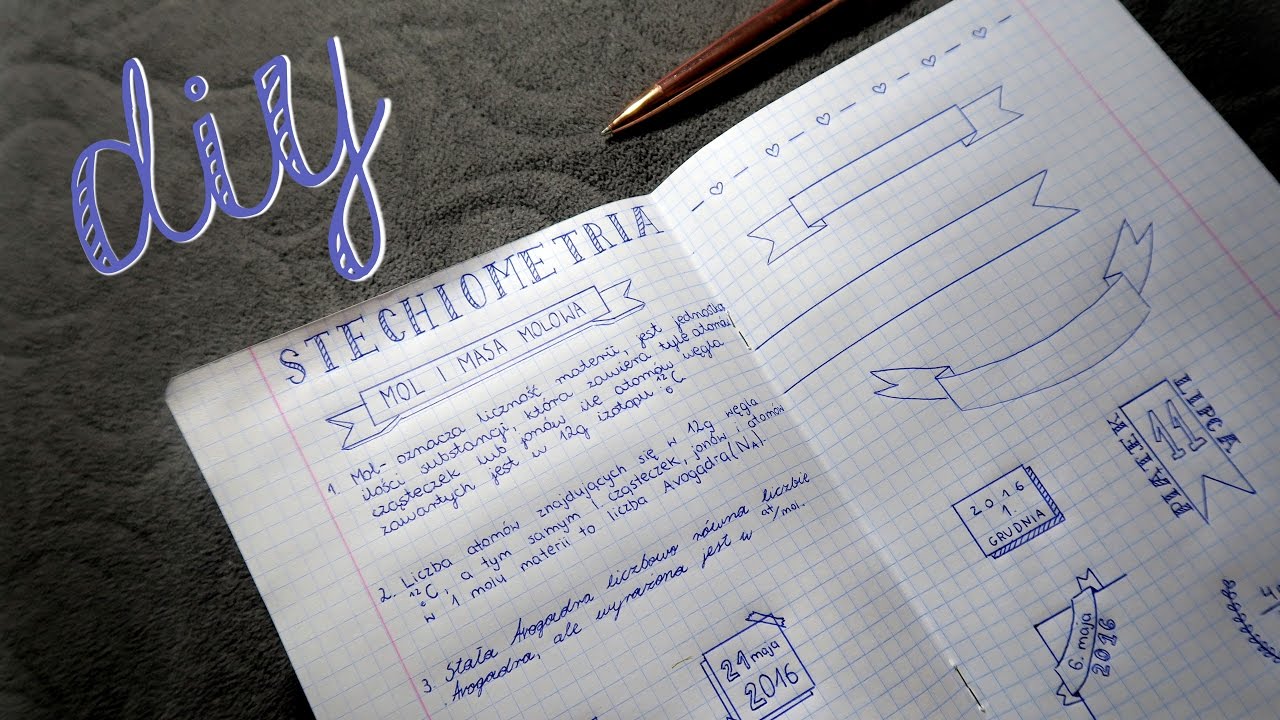 diy
STECHIOMETRIA
MOL I MASA MOLOWA
1. Mol- oznacza liczność materii, jest jednostką
ilości substancji, która zawiera tyle atomów
cząsteczek lub jonów ile atomów węgla
zawartych jest w 12g izotopu ¹²₆C
2. Liczba atomów znajdujących się w 12g węgla
¹²₆C, a tym samym l. cząsteczek, jonów i atomów
w 1 molu materii to liczba Avogadra (NA).
3. Stała Avogadra liczbowo równa liczbie
Avogadra, ale wyrażona jest w at/mol.
21 maja
2016
PIĄTEK
11
LIPCA
2016
1.
GRUDNIA
6. maja
2016